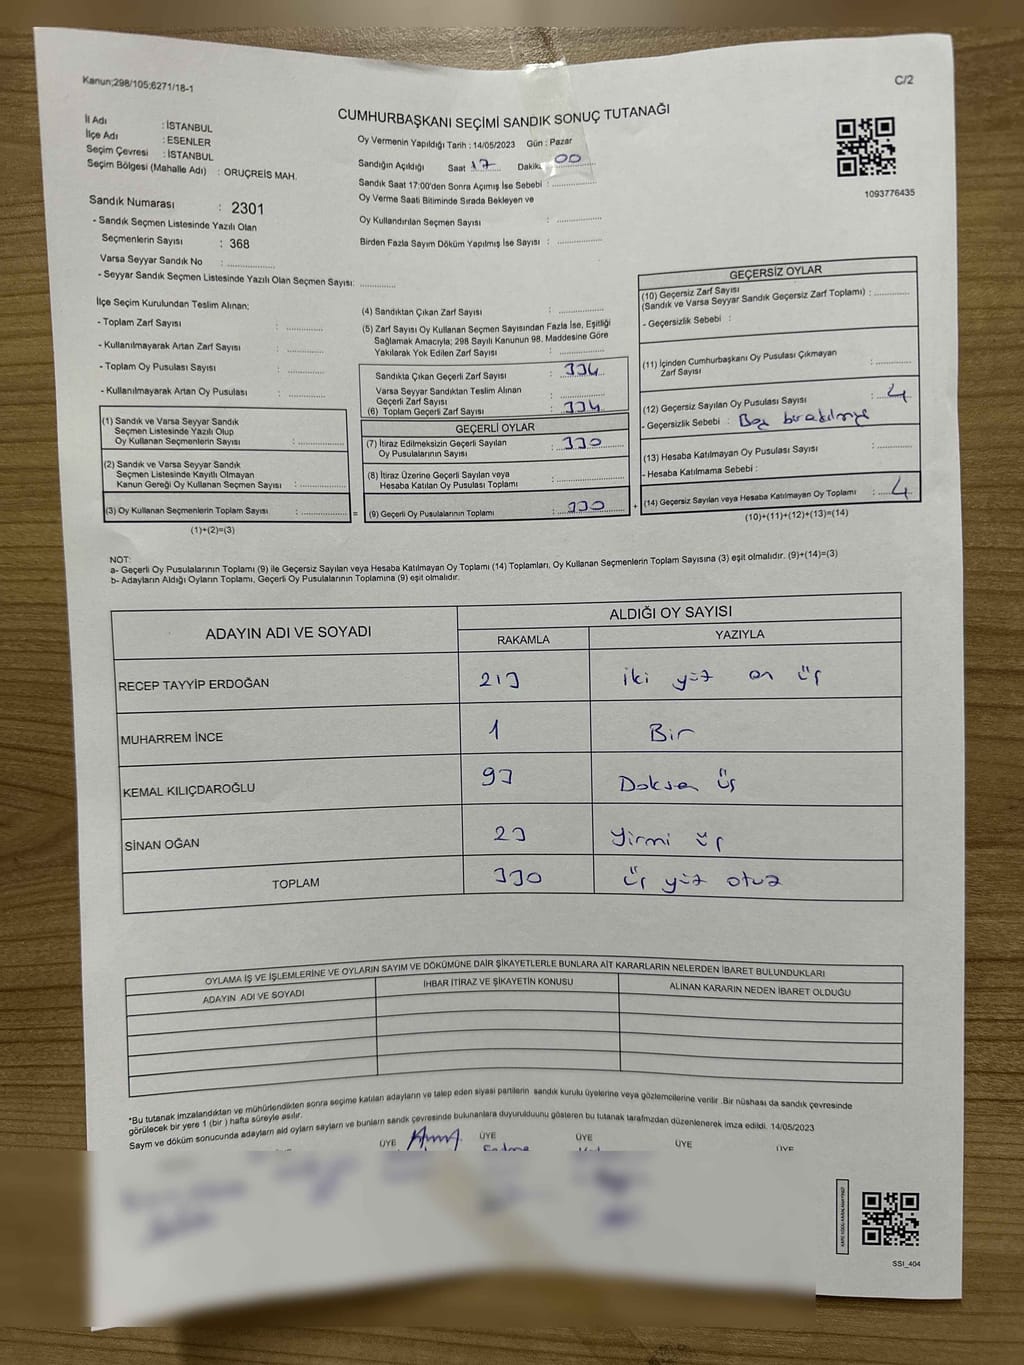 Kanun;298/105;6271/18-1
C/2
CUMHURBAŞKANI SEÇİMİ SANDIK SONUÇ TUTANAĞI
İl Adı : İSTANBUL
İlçe Adı : ESENLER
Seçim Çevresi : İSTANBUL
Seçim Bölgesi (Mahalle Adı) : ORUÇREİS MAH.
Oy Vermenin Yapıldığı Tarih : 14/05/2023 Gün : Pazar
Sandığın Açıldığı Saat 17 Dakika 00
Sandık Saat 17:00'den Sonra Açımış İse Sebebi :
Oy Verme Saati Bitiminde Sırada Bekleyen ve
Oy Kullandırılan Seçmen Sayısı :
Birden Fazla Sayım Döküm Yapılmış İse Sayısı :
1093776435
Sandık Numarası : 2301
- Sandık Seçmen Listesinde Yazılı Olan
Seçmenlerin Sayısı : 368
Varsa Seyyar Sandık No :
- Seyyar Sandık Seçmen Listesinde Yazılı Olan Seçmen Sayısı:
İlçe Seçim Kurulundan Teslim Alınan;
- Toplam Zarf Sayısı :
- Kullanılmayarak Artan Zarf Sayısı :
- Toplam Oy Pusulası Sayısı :
- Kullanılmayarak Artan Oy Pusulası :
(1) Sandık ve Varsa Seyyar Sandık
Seçmen Listesinde Yazılı Olup
Oy Kullanan Seçmenlerin Sayısı :
(2) Sandık ve Varsa Seyyar Sandık
Seçmen Listesinde Kayıtlı Olmayan
Kanun Gereği Oy Kullanan Seçmen Sayısı :
(3) Oy Kullanan Seçmenlerin Toplam Sayısı : =
(1)+(2)=(3)
(4) Sandıktan Çıkan Zarf Sayısı :
(5) Zarf Sayısı Oy Kullanan Seçmen Sayısından Fazla İse, Eşitliği
Sağlamak Amacıyla; 298 Sayılı Kanunun 98. Maddesine Göre
Yakılarak Yok Edilen Zarf Sayısı :
Sandıkta Çıkan Geçerli Zarf Sayısı : 334
Varsa Seyyar Sandıktan Teslim Alınan
Geçerli Zarf Sayısı :
(6) Toplam Geçerli Zarf Sayısı : 334
GEÇERLİ OYLAR
(7) İtiraz Edilmeksizin Geçerli Sayılan
Oy Pusulalarının Sayısı : 330
(8) İtiraz Üzerine Geçerli Sayılan veya
Hesaba Katılan Oy Pusulası Toplamı :
(9) Geçerli Oy Pusulalarının Toplamı : 330 +
GEÇERSİZ OYLAR
(10) Geçersiz Zarf Sayısı
(Sandık ve Varsa Seyyar Sandık Geçersiz Zarf Toplamı) :
- Geçersizlik Sebebi :
(11) İçinden Cumhurbaşkanı Oy Pusulası Çıkmayan
Zarf Sayısı :
(12) Geçersiz Sayılan Oy Pusulası Sayısı : 4
- Geçersizlik Sebebi : Boş
(13) Hesaba Katılmayan Oy Pusulası Sayısı :
- Hesaba Katılmama Sebebi :
(14) Geçersiz Sayılan veya Hesaba Katılmayan Oy Toplamı : 4
(10)+(11)+(12)+(13)=(14)
NOT:
a- Geçerli Oy Pusulalarının Toplamı (9) ile Geçersiz Sayılan veya Hesaba Katılmayan Oy Toplamı (14) Toplamları, Oy Kullanan Seçmenlerin Toplam Sayısına (3) eşit olmalıdır. (9)+(14)=(3)
b- Adayların Aldığı Oyların Toplamı, Geçerli Oy Pusulalarının Toplamına (9) eşit olmalıdır.
ADAYIN ADI VE SOYADI
ALDIĞI OY SAYISI
RAKAMLA YAZIYLA
RECEP TAYYİP ERDOĞAN 213 iki yüz on üç
MUHARREM İNCE 1 Bir
KEMAL KILIÇDAROĞLU 93 Doksan üç
SİNAN OĞAN 23 Yirmi üç
TOPLAM 330 üç yüz otuz
OYLAMA İŞ VE İŞLEMLERİNE VE OYLARIN SAYIM VE DÖKÜMÜNE DAİR ŞİKAYETLERLE BUNLARA AİT KARARLARIN NELERDEN İBARET BULUNDUKLARI
ADAYIN ADI VE SOYADI İHBAR İTİRAZ VE ŞİKAYETİN KONUSU ALINAN KARARIN NEDEN İBARET OLDUĞU
*Bu tutanak imzalandıktan ve mühürlendikten sonra seçime katılan adayların ve talep eden siyasi partilerin sandık kurulu üyelerine veya gözlemcilerine verilir .Bir nüshası da sandık çevresinde
görülecek bir yere 1 (bir ) hafta süreyle asılır.
Sayım ve döküm sonucunda adayların aldı oyların sayların ve bunların sandık çevresinde bulunanlara duyurulduunu gösteren bu tutanak tarafımızdan düzenlenerek imza edildi. 14/05/2023
ÜYE ÜYE ÜYE ÜYE ÜYE
SSI_404